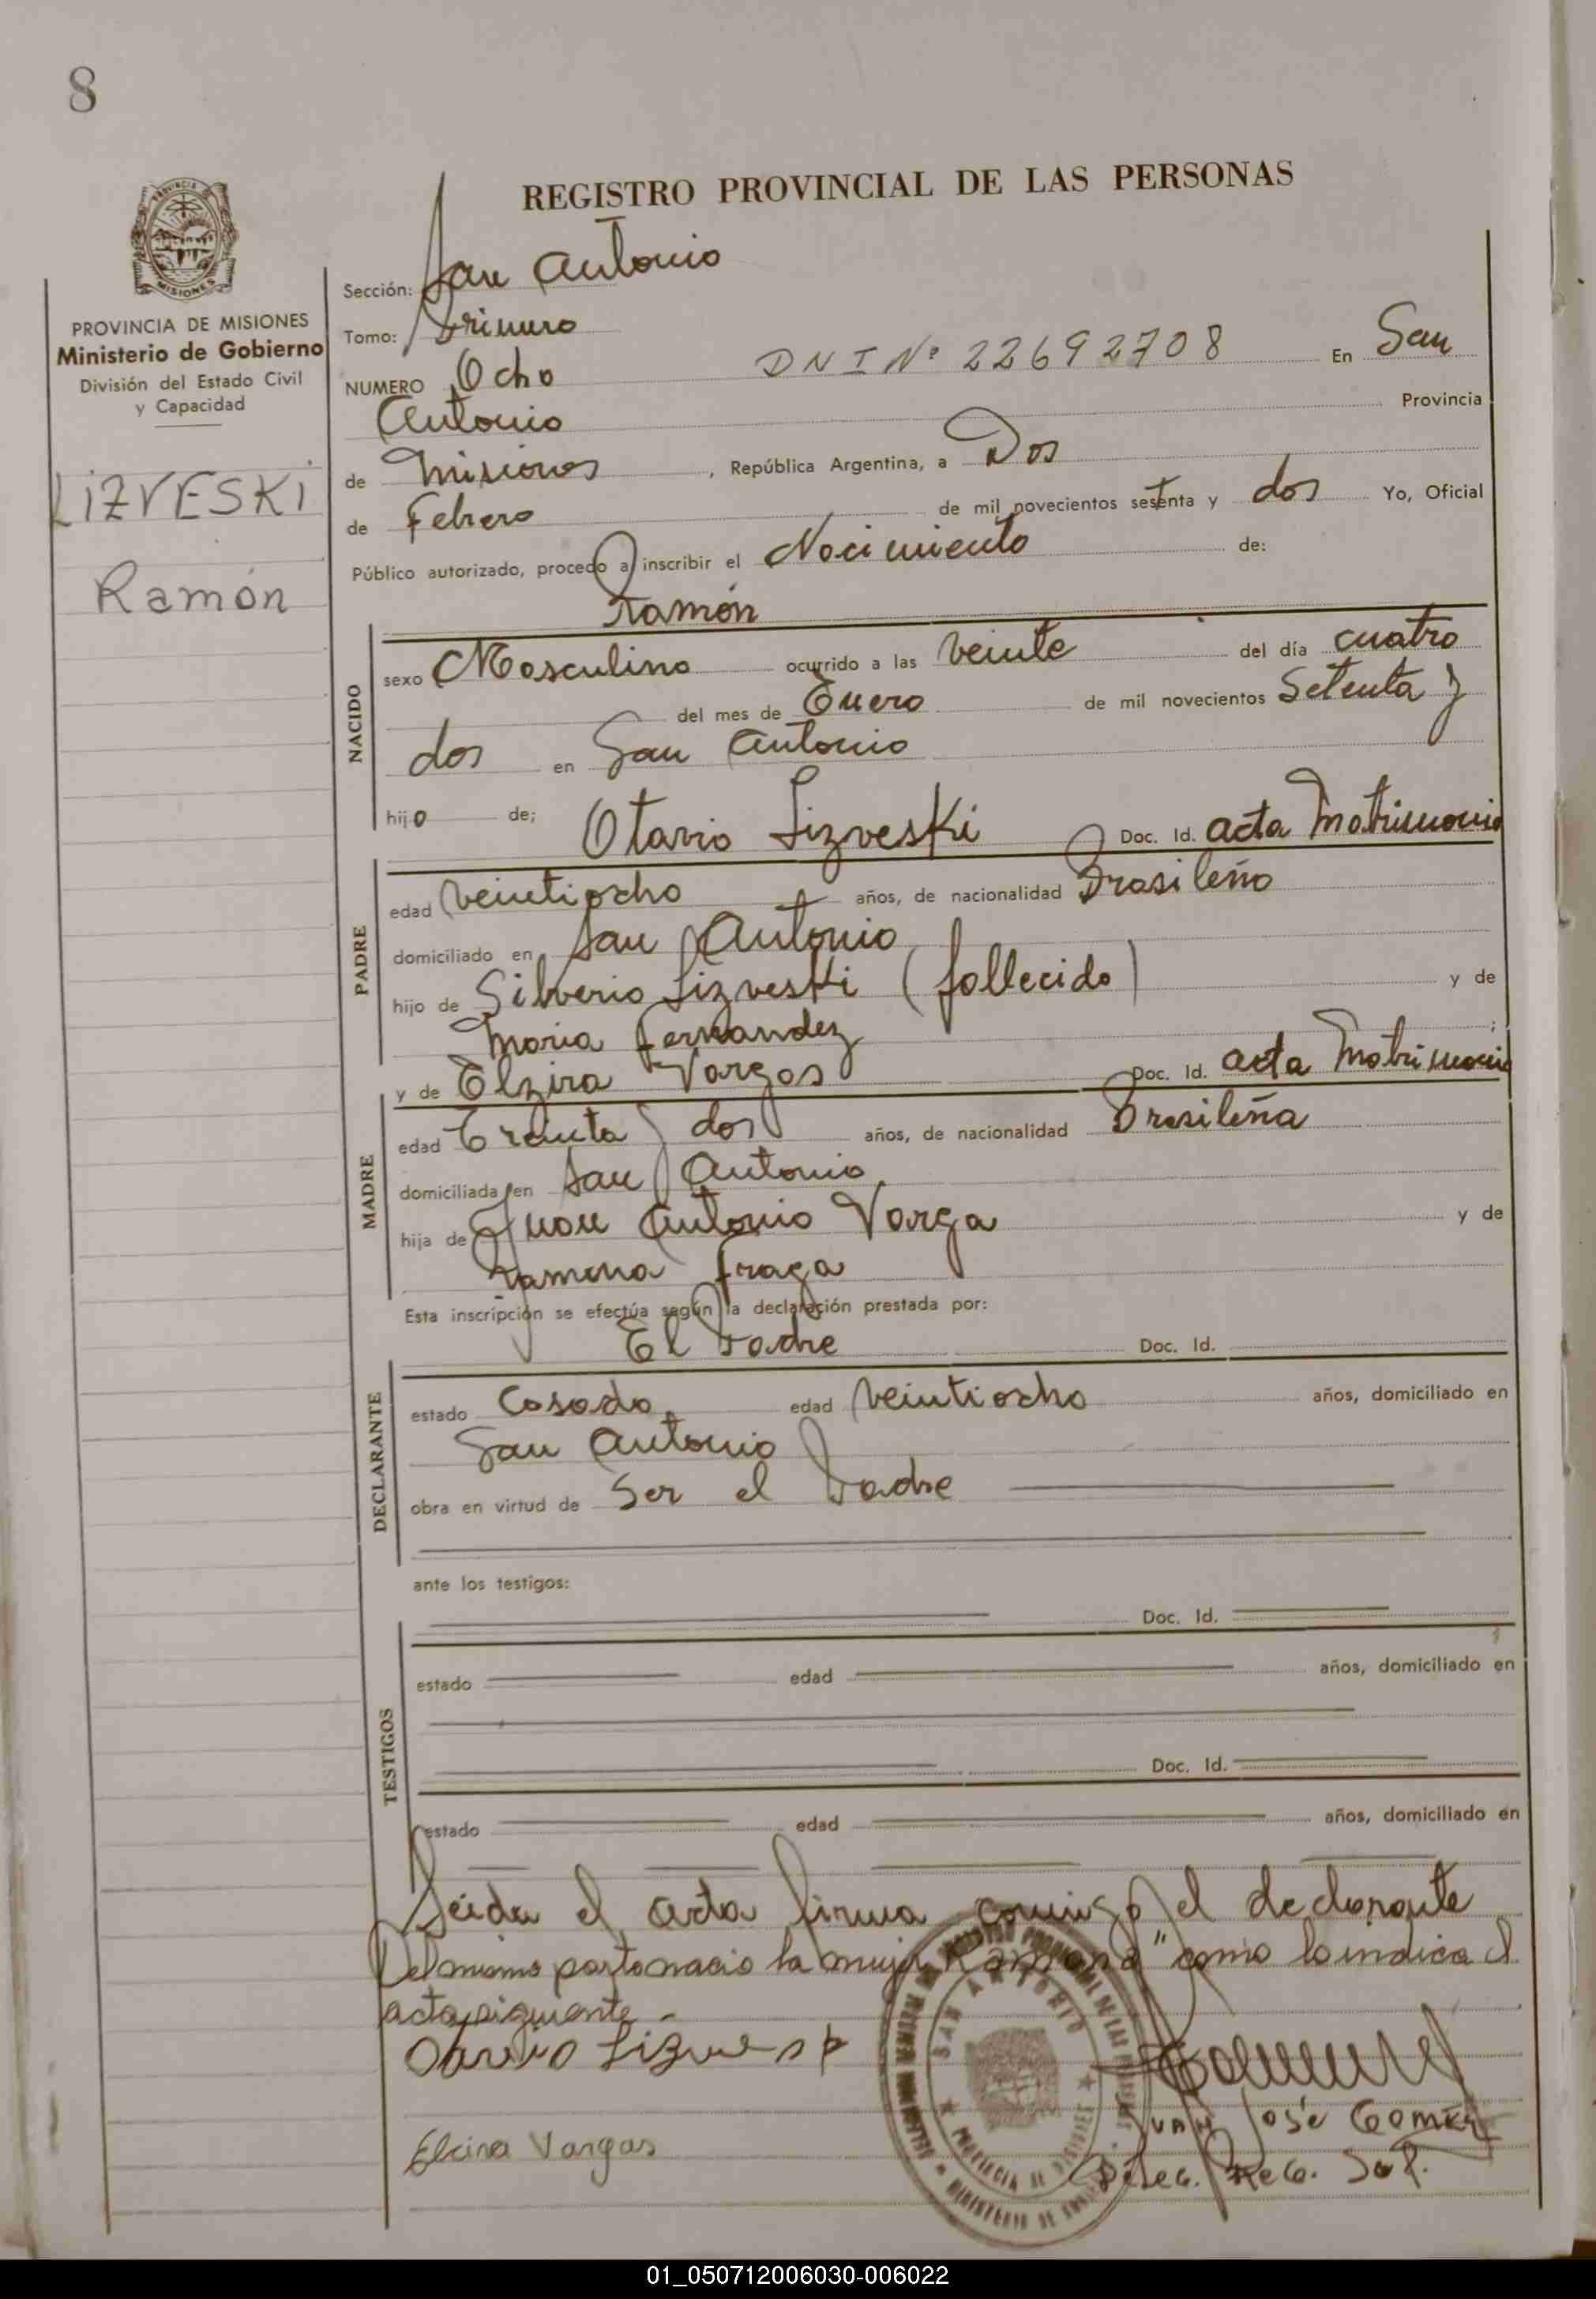 8
REGISTRO PROVINCIAL DE LAS PERSONAS
PROVINCIA DE MISIONES
Ministerio de Gobierno
División del Estado Civil
y Capacidad
LIZVESKI
Ramón
Sección: San Antonio
Tomo: Primero
NUMERO Ocho DNI Nº 22692708 En San
Antonio Provincia
de Misiones, República Argentina, a Dos
de Febrero de mil novecientos setenta y dos Yo, Oficial
Público autorizado, procedo a inscribir el Nacimiento de:
Ramón
NACIDO
sexo Masculino ocurrido a las veinte del día cuatro
del mes de Enero de mil novecientos Setenta y
dos en San Antonio
hijo de; Otavio Lizveski Doc. Id. acta Matrimonio
PADRE
edad veintiocho años, de nacionalidad Brasileño
domiciliado en San Antonio
hijo de Silverio Lizveski (fallecido) y de
Maria Fernandez;
y de Elzira Vargas Doc. Id. acta Matrimonio
MADRE
edad Treinta y dos años, de nacionalidad Brasileña
domiciliada en San Antonio
hija de Juan Antonio Varga y de
Ramona Fraga
Esta inscripción se efectúa según la declaración prestada por:
El Padre Doc. Id.
DECLARANTE
estado Casado edad veintiocho años, domiciliado en
San Antonio
obra en virtud de Ser el Padre
ante los testigos:
Doc. Id.
TESTIGOS
estado edad años, domiciliado en
Doc. Id.
estado edad años, domiciliado en
Leida el acta firma conmigo el declarante
Del mismo parto nacio la mujer "Ramona" como lo indica el
acta siguiente.-
Elcira Vargas
SAN ANTONIO
PROVINCIA DE MISIONES
Juan José Gomez
01_050712006030-006022